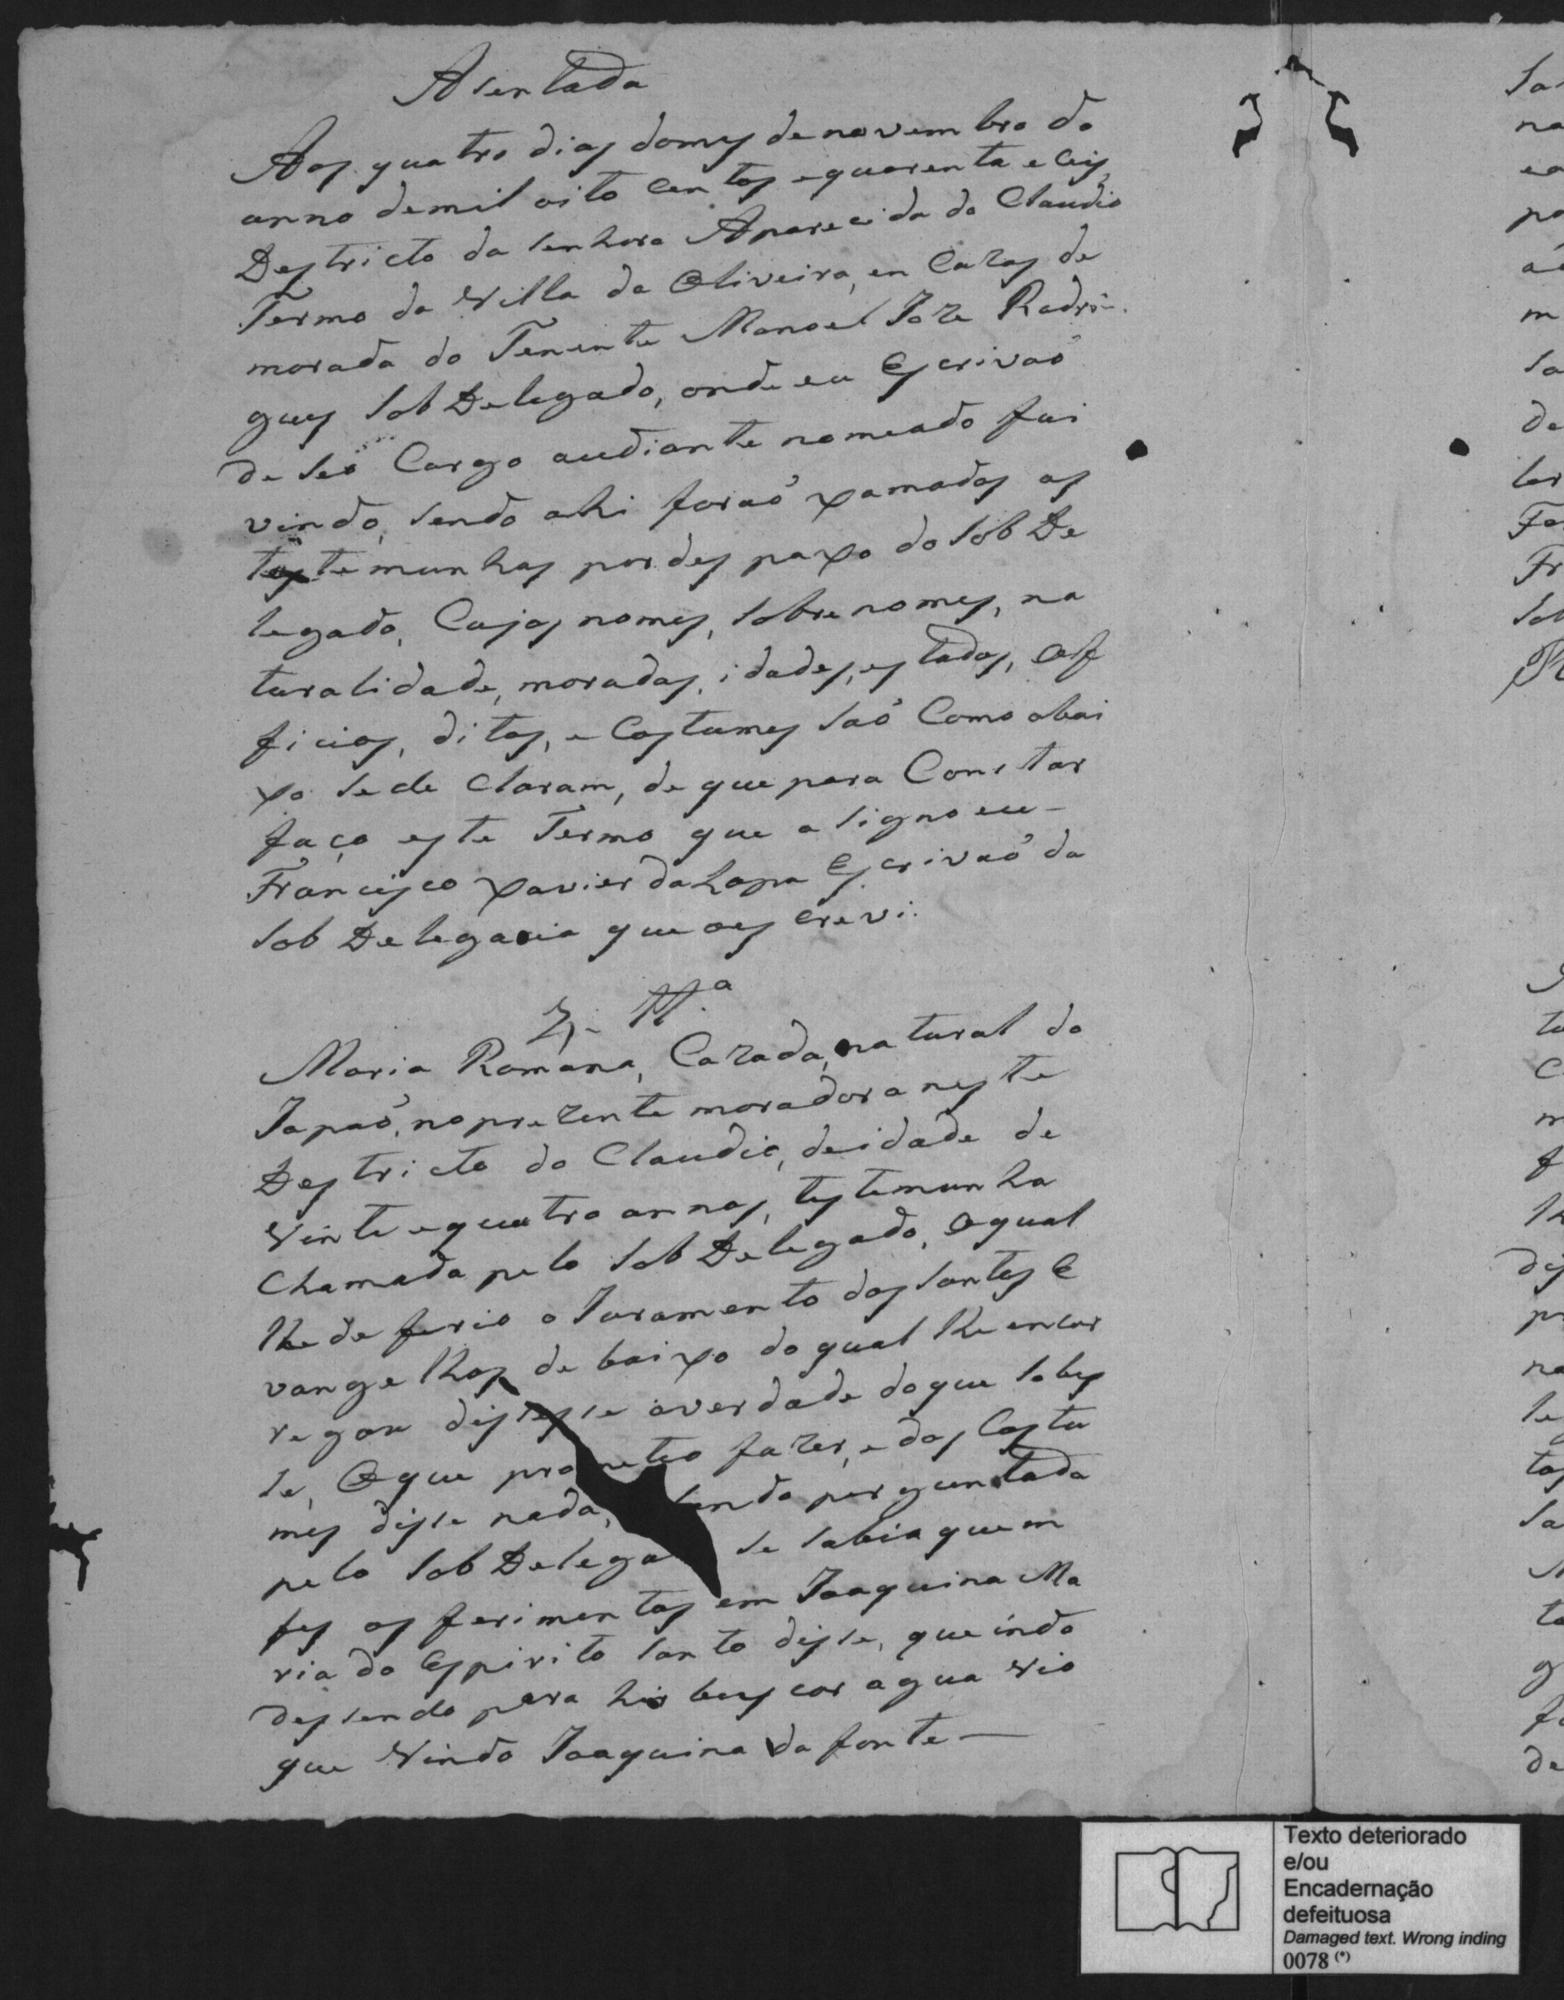 Asentada
Aos quatro dias domes de novembro do
anno demil oito Centos e quarenta e Ceis,
Destricto da Senhora Aparecida do Claudio
Termo da Villa de Oliveira, en Cazas de
morada do Tenente Manoel Joze Rodri-
gues Sob Delegado, onde eu Escrivaõ
de seo Cargo audiante nomeado fui
vindo, sendo ahi foraõ xamados as
testemunhas por des paxo do Sob De
legado, Cujos nomes, Sobre nomes, na
turalidade, moradas, idades, estados, Of
ficios, ditos, e Costumes Saõ Como abai
xo se de Claram, de que para Constar
faço este Termo que asigno eu -
Francisco Xavier da Lapa Escrivaõ da
Sob Delegacia que oes crevi.
Ttª
Maria Romana, Cazada, natural do
Japaõ, no prezente moradora neste
Destricto do Claudio, de idade de
Vinte e quatro annos, testemunha
Chamada pelo Sob Delegado, Oqual
lhe de ferio o Juramento dos Santos E
vange lhos de baixo do qual lhe encar
regou disesse averdade doque Sobes
se, Oque prometeo fazer, e dos Costu
mes disse nada, Sendo perguntada
pelo Sob Delega se Sabia quem
fes os ferimentos em Joaquina Ma
ria do Espirito Santo disse, que indo
dessendo para hir buscar agua Vio
que Vindo Joaquina da fonte —
Texto deteriorado
e/ou
Encadernação
defeituosa
Damaged text. Wrong inding
0078 (*)